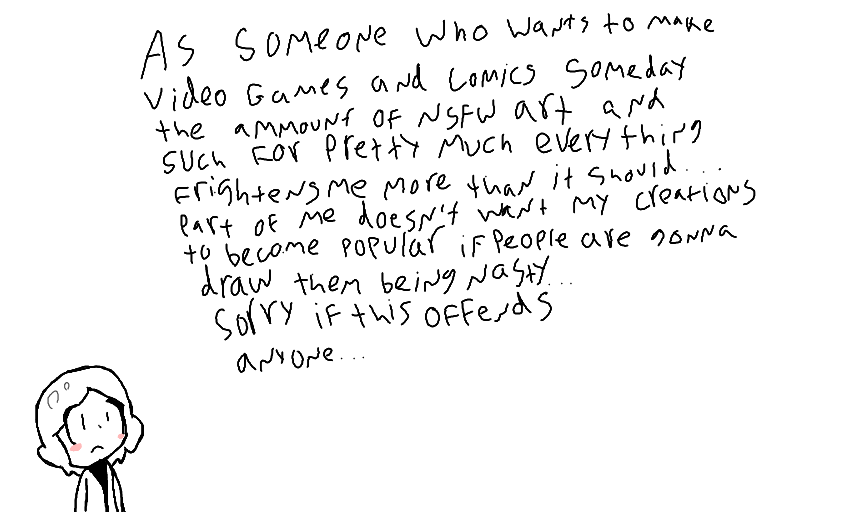 As someone who wants to make
video Games and comics someday
the ammount of NSFW art and
such for pretty much everything
frightens me more than it should...
part of me doesn't want my creations
to become popular if people are gonna
draw them being nasty...
sorry if this offends
anyone...